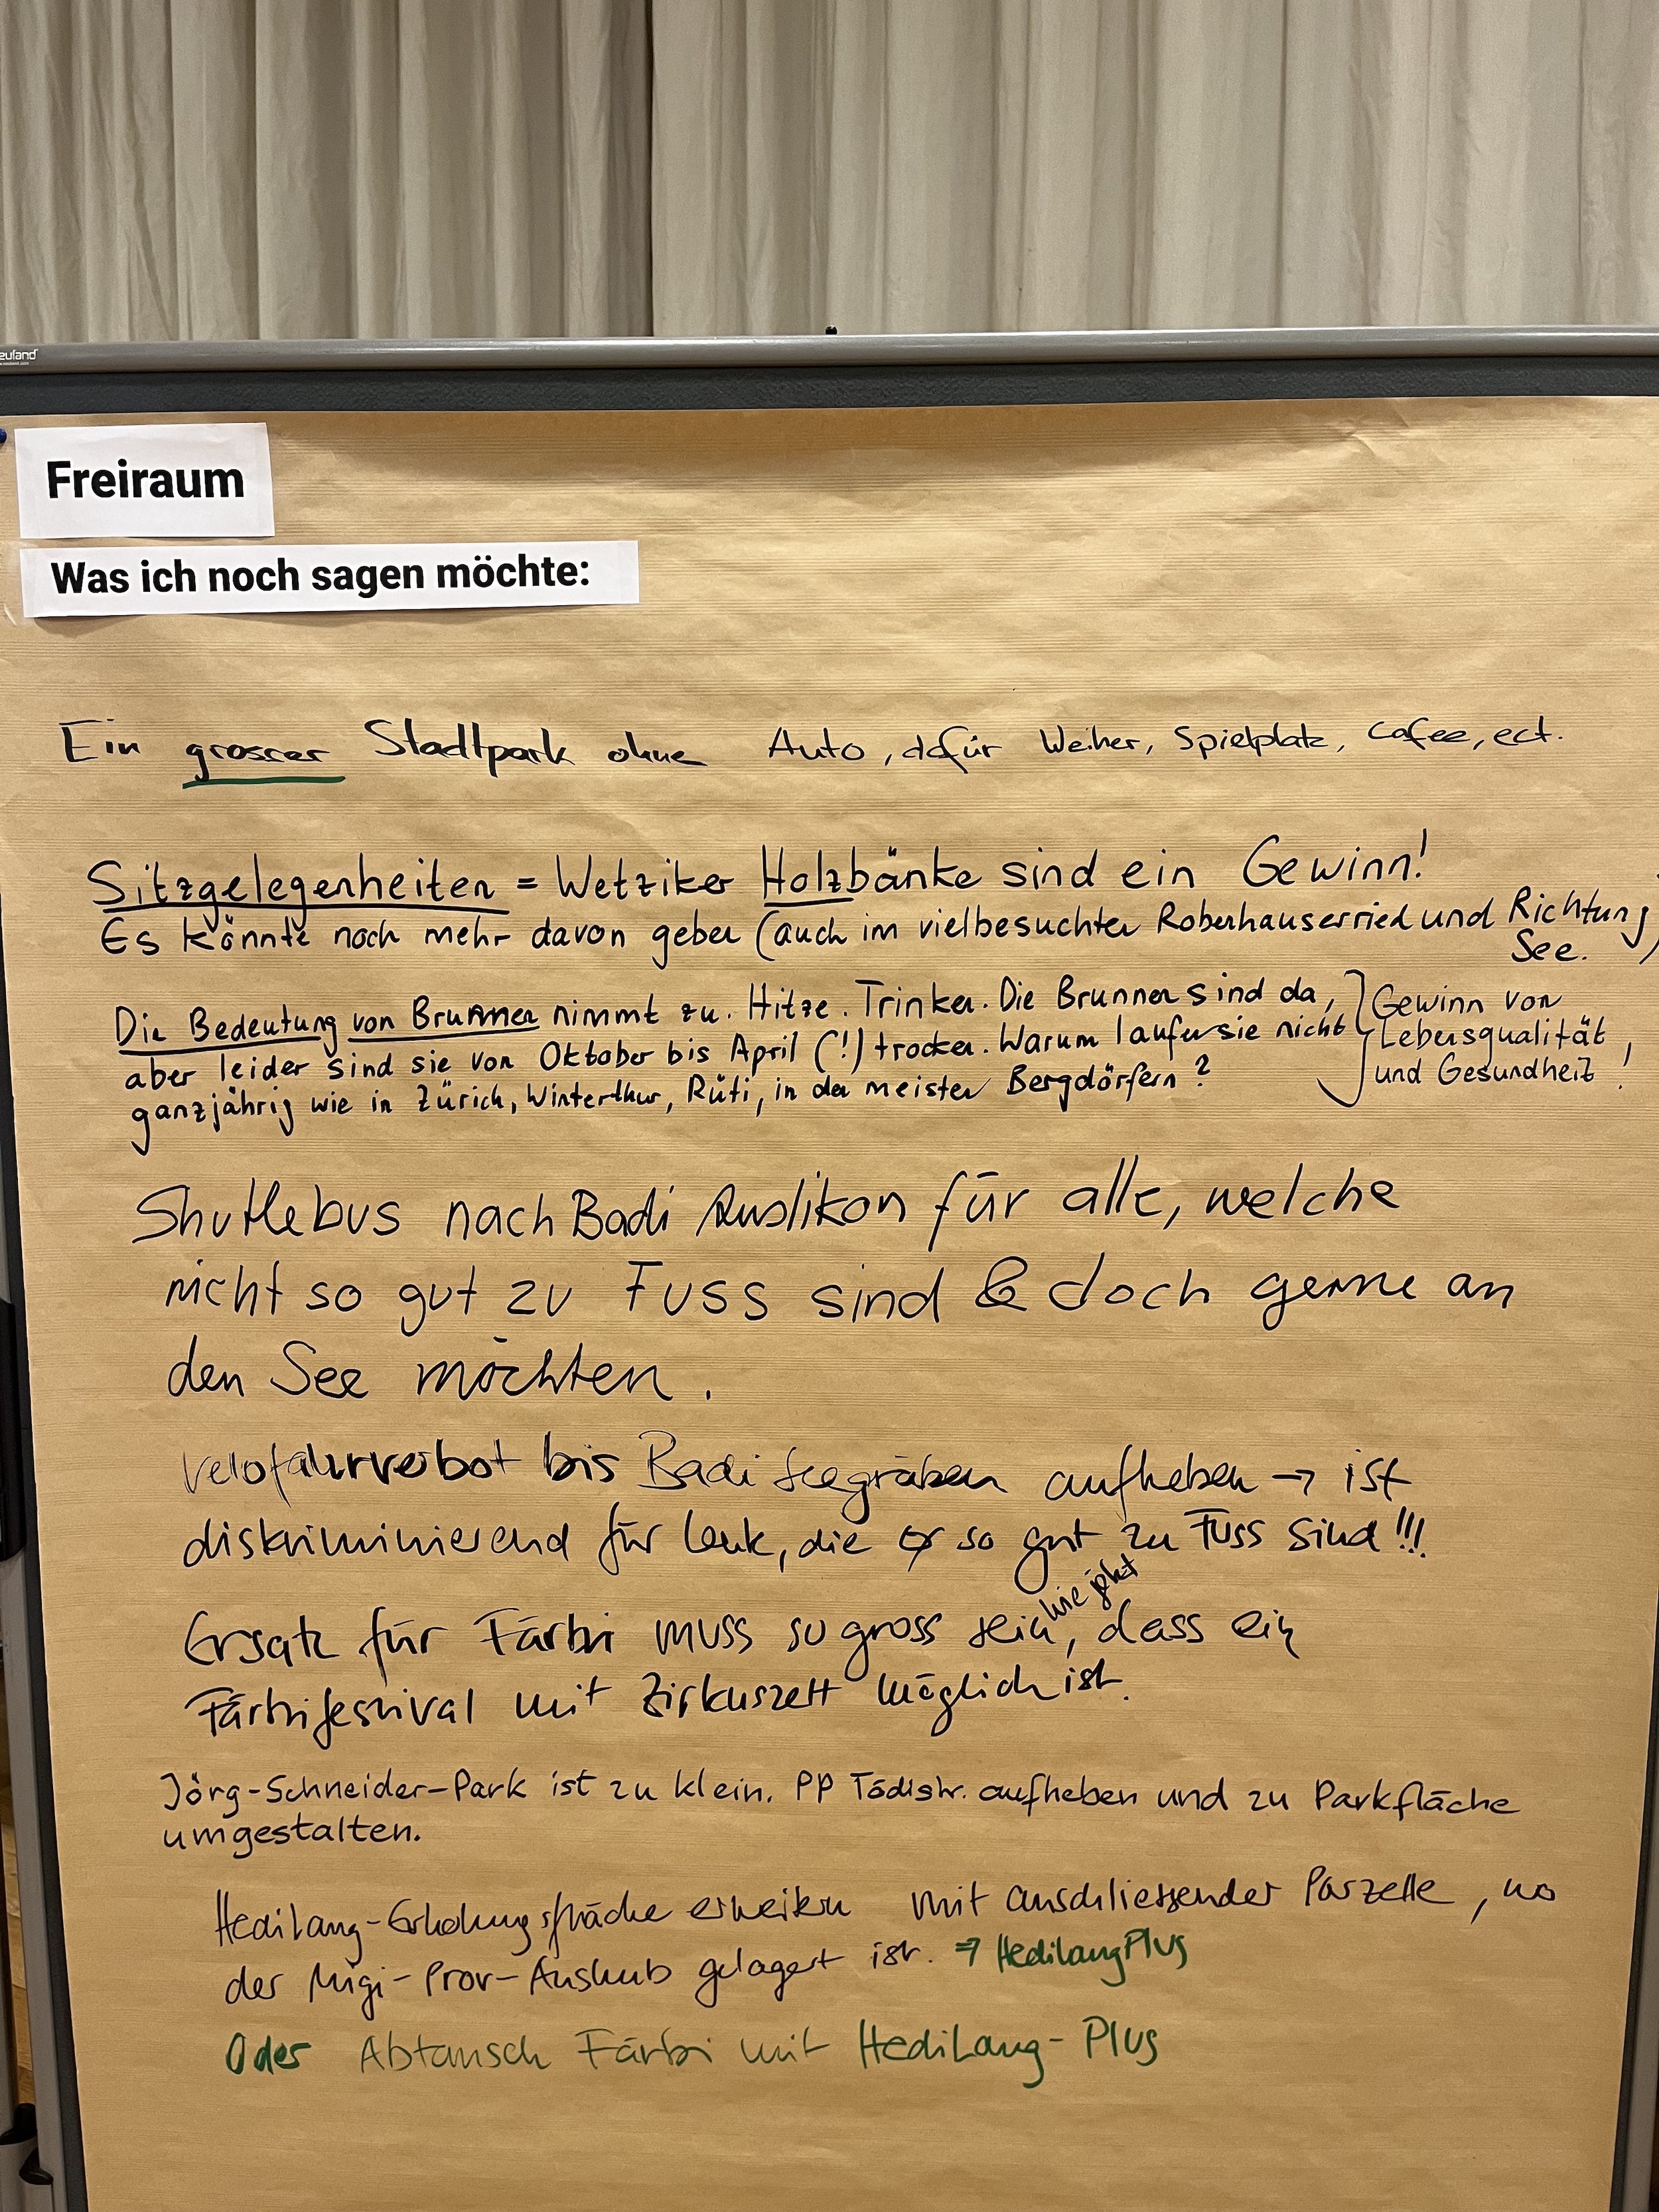 Freiraum
Was ich noch sagen möchte:
Ein grosser Stadtpark ohne Auto, dafür Weiher, Spielplatz, Cafee, ect.
Sitzgelegenheiten = Wetziker Holzbänke sind ein Gewinn!
Es könnte noch mehr davon geben (auch im vielbesuchten Robenhauserried und Richtung
See.)
Die Bedeutung von Brunnen nimmt zu. Hitze. Trinken. Die Brunnen sind da,
aber leider sind sie von Oktober bis April (!) trocken. Warum laufen sie nicht
ganzjährig wie in Zürich, Winterthur, Rüti, in den meisten Bergdörfern?
Gewinn von
Lebensqualität
und Gesundheit!
Shuttlebus nach Badi Auslikon für alle, welche
nicht so gut zu Fuss sind & doch gerne an
den See möchten.
Velofahrverbot bis Badi Seegräben aufheben → ist
diskriminierend für Leute, die so gut zu Fuss sind!!!
Ersatz für Färbi muss so gross sein wie jetzt, dass ein
Färbifestival mit Zirkuszelt möglich ist.
Jörg-Schneider-Park ist zu klein. PP Tödistr. aufheben und zu Parkfläche
umgestalten.
HediLang-Erholungsfläche erweitern mit anschliessender Parzelle, wo
der Migi-Prov-Aushub gelagert ist. ⇒ HediLangPlus
Oder Abtausch Färbi mit HediLang-Plus